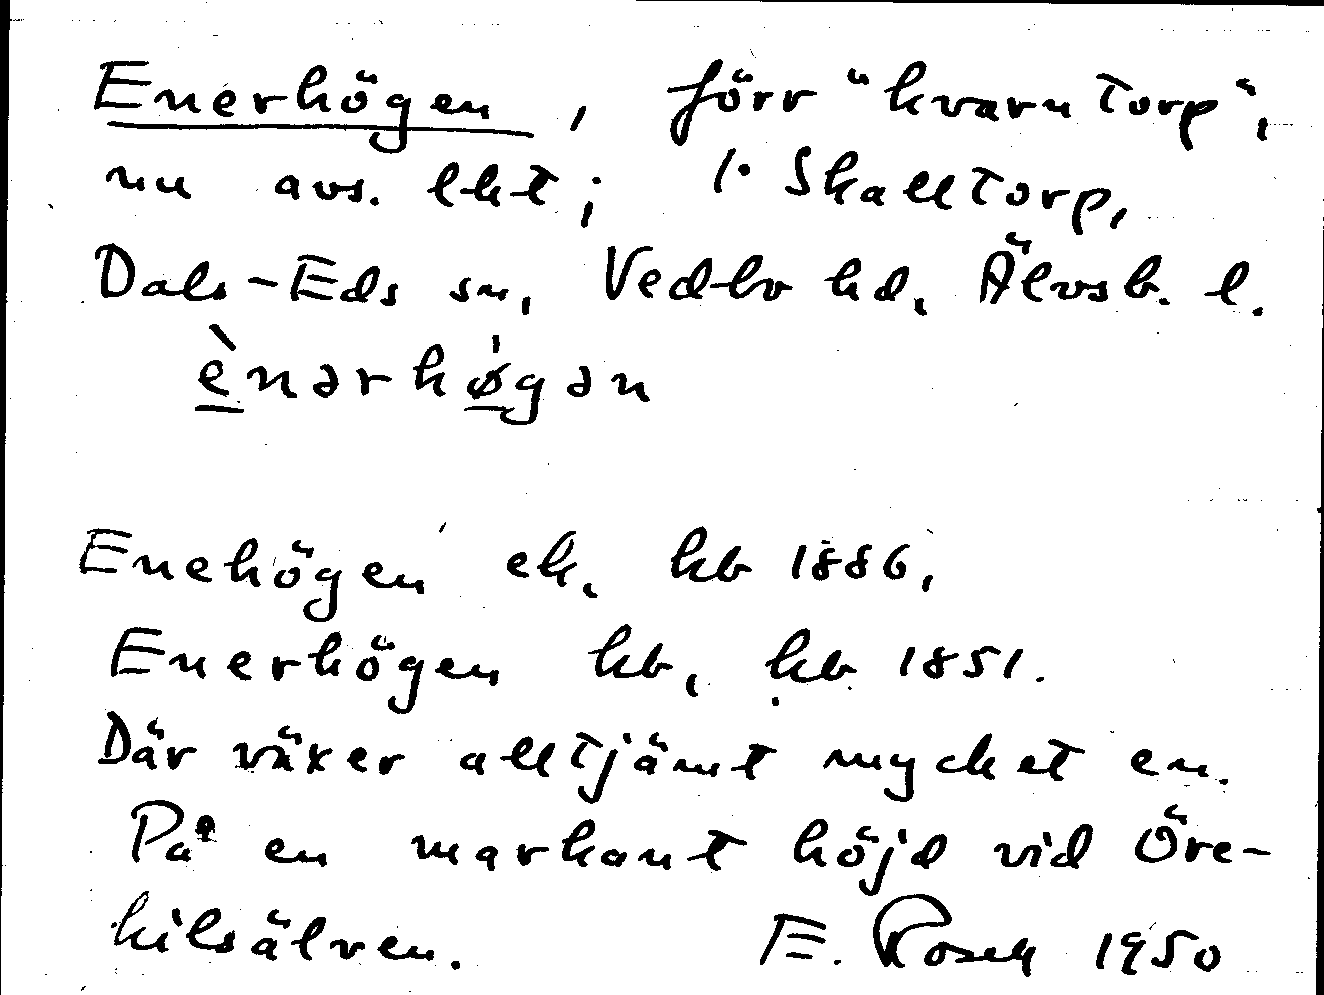 Enerhögen, förr "kvarntorp",
nu avs. lht; 1. Skalltorp,
Dals-Eds sn, Vedbo hd, Älvsb. l.
ènərhø̍gən
Enehögen ek. kb 1886,
Enerhögen hb, kb 1851.
Där växer alltjämt mycket en.
På en markant höjd vid Öre-
kilsälven. E. Rosell 1950